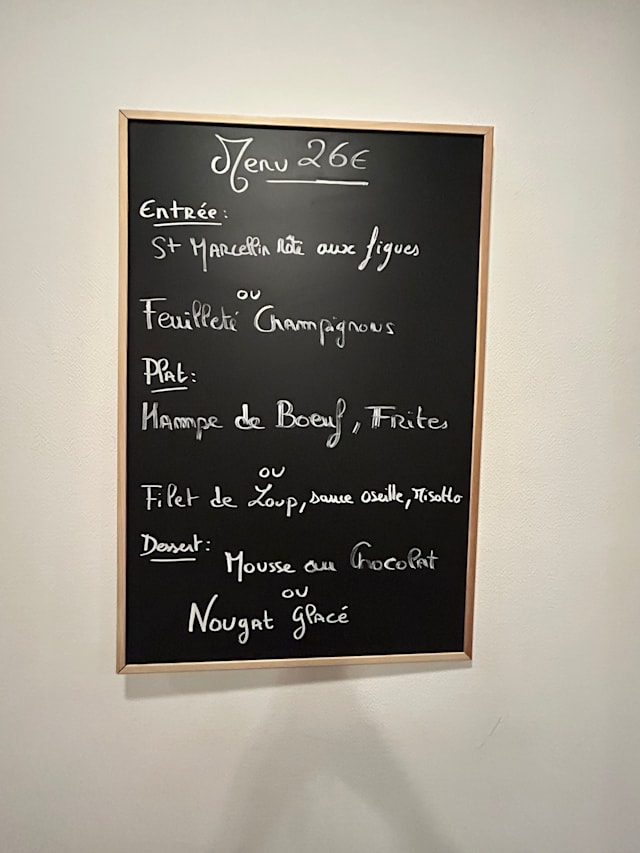 Menu 26€
Entrée:
St Marcellin Rôti aux figues
ou
Feuilleté Champignons
Plat:
Hampe de Boeuf, Frites
ou
Filet de Loup, sauce oseille, Risotto
Dessert:
Mousse au Chocolat
ou
Nougat Glacé